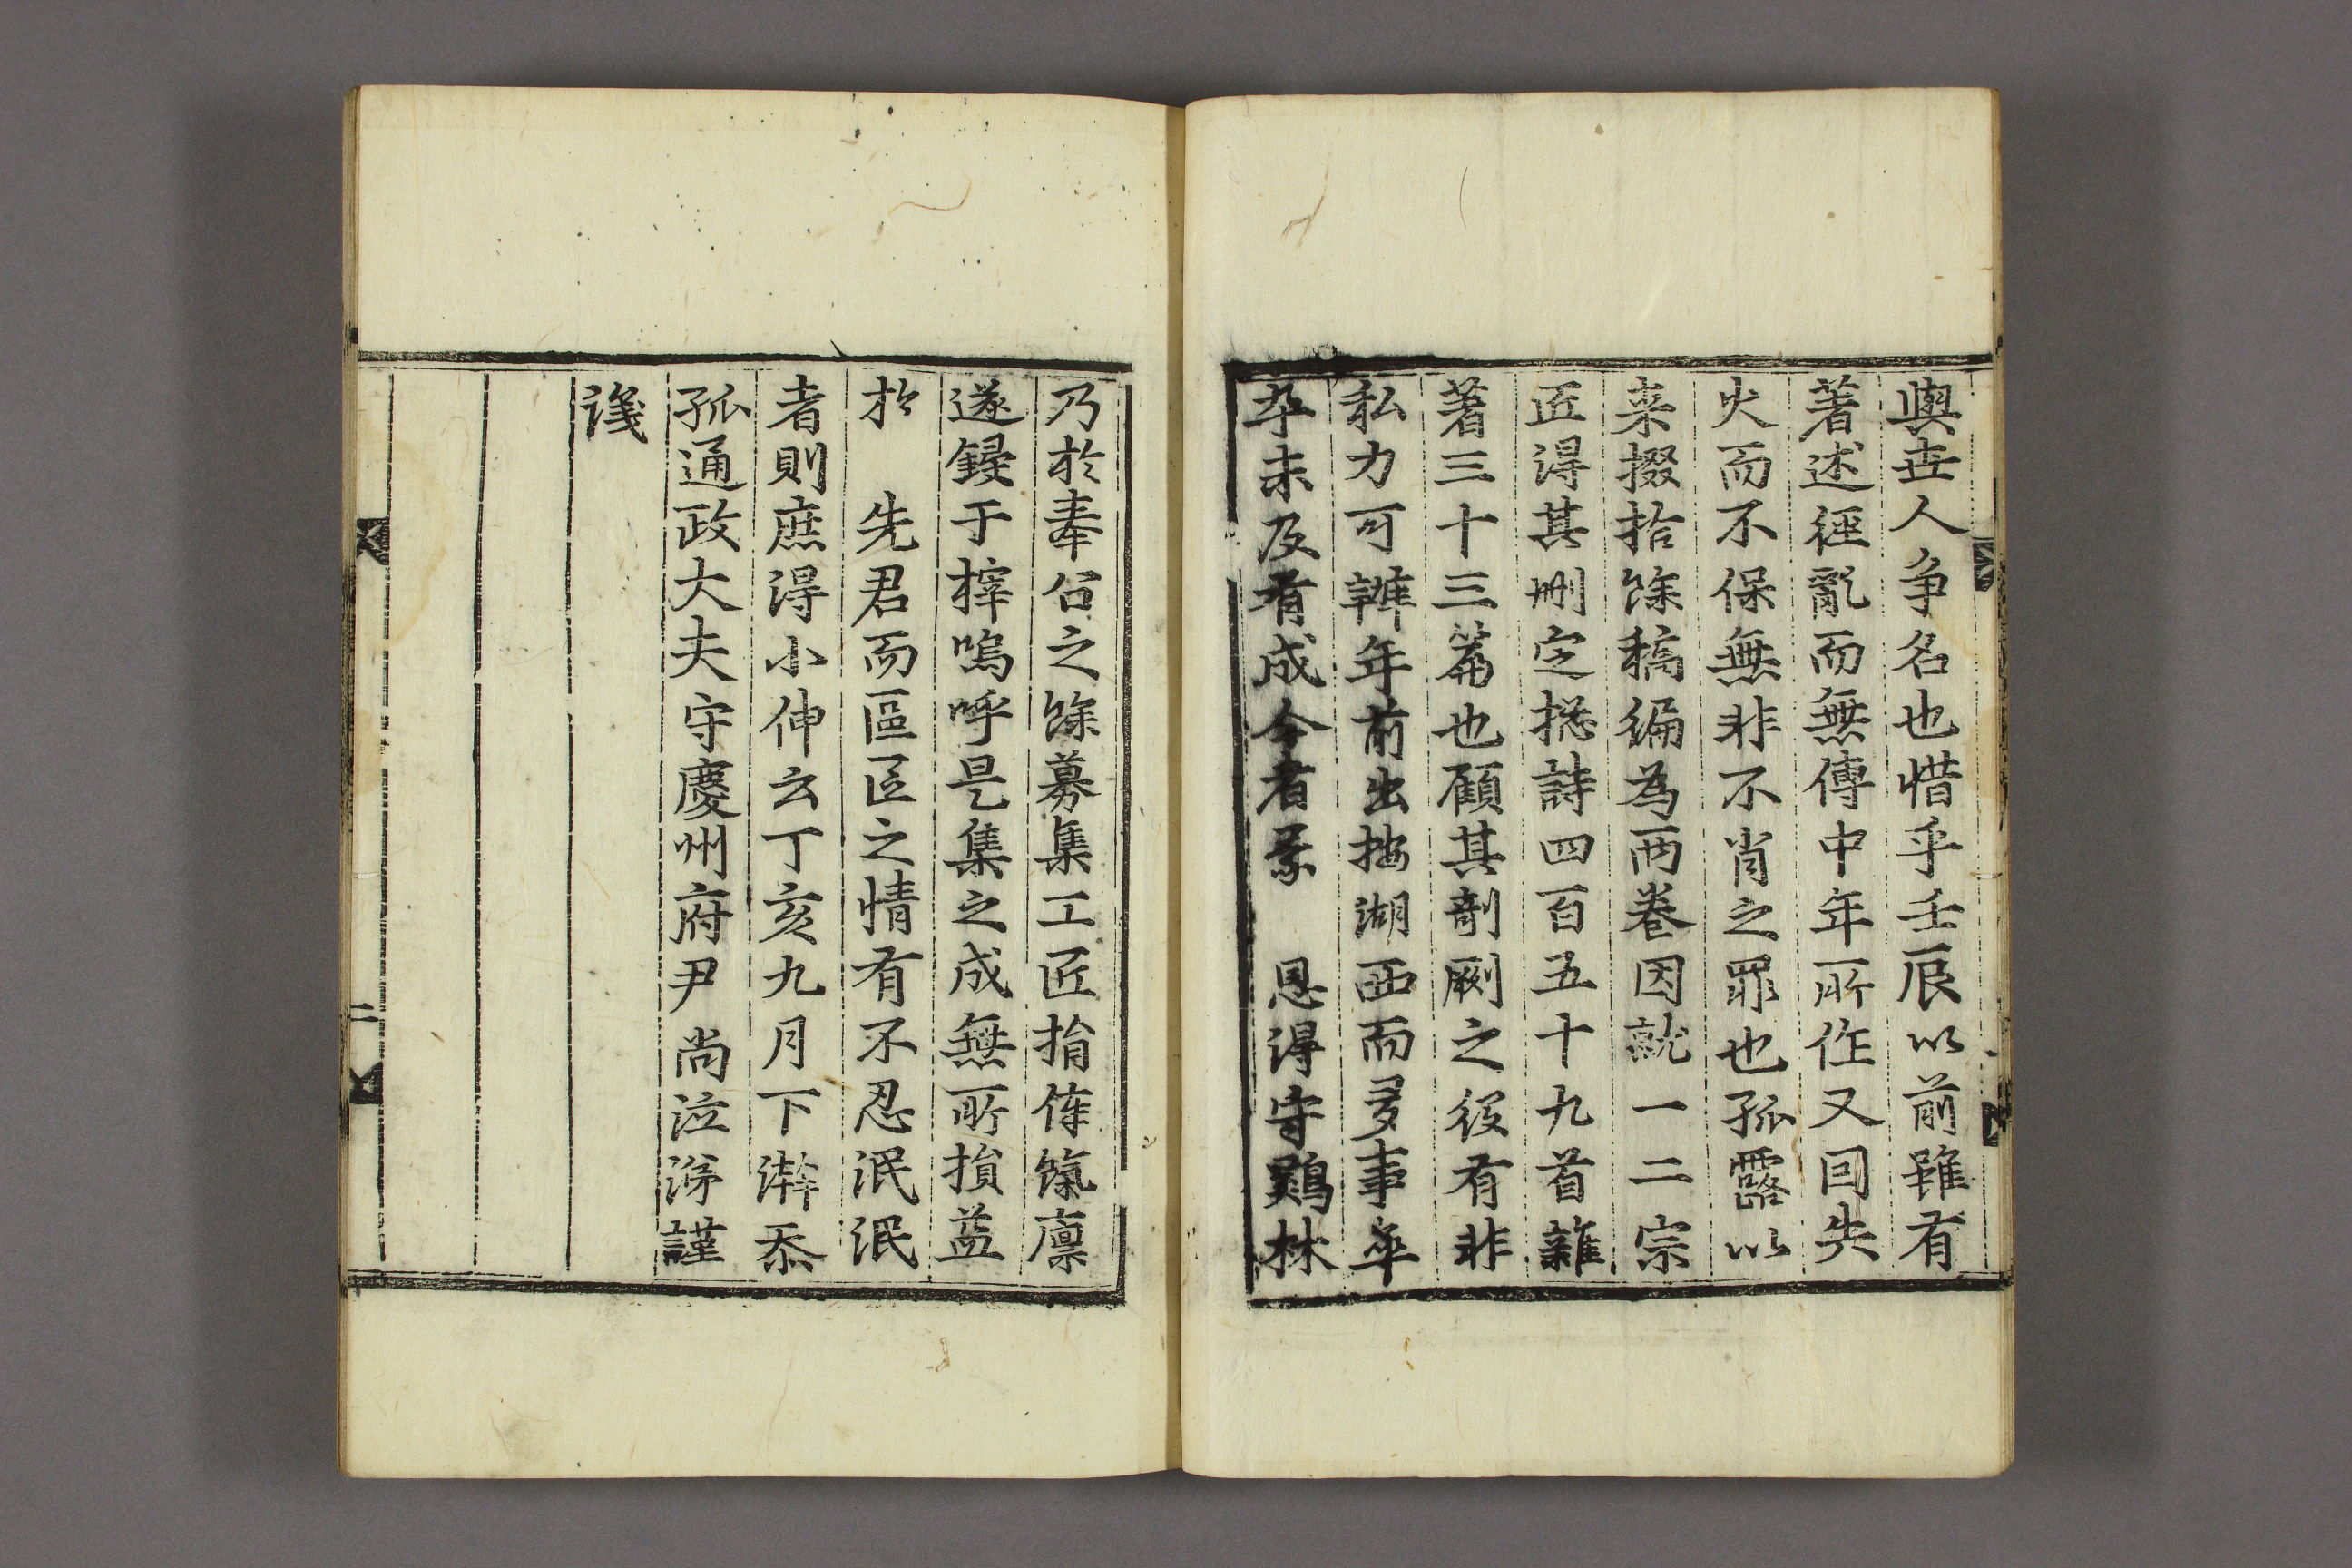 與世人爭名也惜乎壬辰以前雖有
著述經亂而無傳中年所作又囘失
火而不保無非不肖之罪也孤露以
來掇拾餘稿編為兩卷因就一二宗
匠得其刪定摠詩四百五十九首雜
著三十三篇也顧其剞劂之役有非
私力可辦年前出按湖西而多事卒
卒未及有成今者蒙　恩得守鷄林
乃於奉公之餘募集工匠捐俸餼廩
遂鋟于梓嗚呼是集之成無所損益
於　先君而區區之情有不忍泯泯
者則庶得小伸云丁亥九月下澣忝
孤通政大夫守慶州府尹尚泣涕謹
識
二